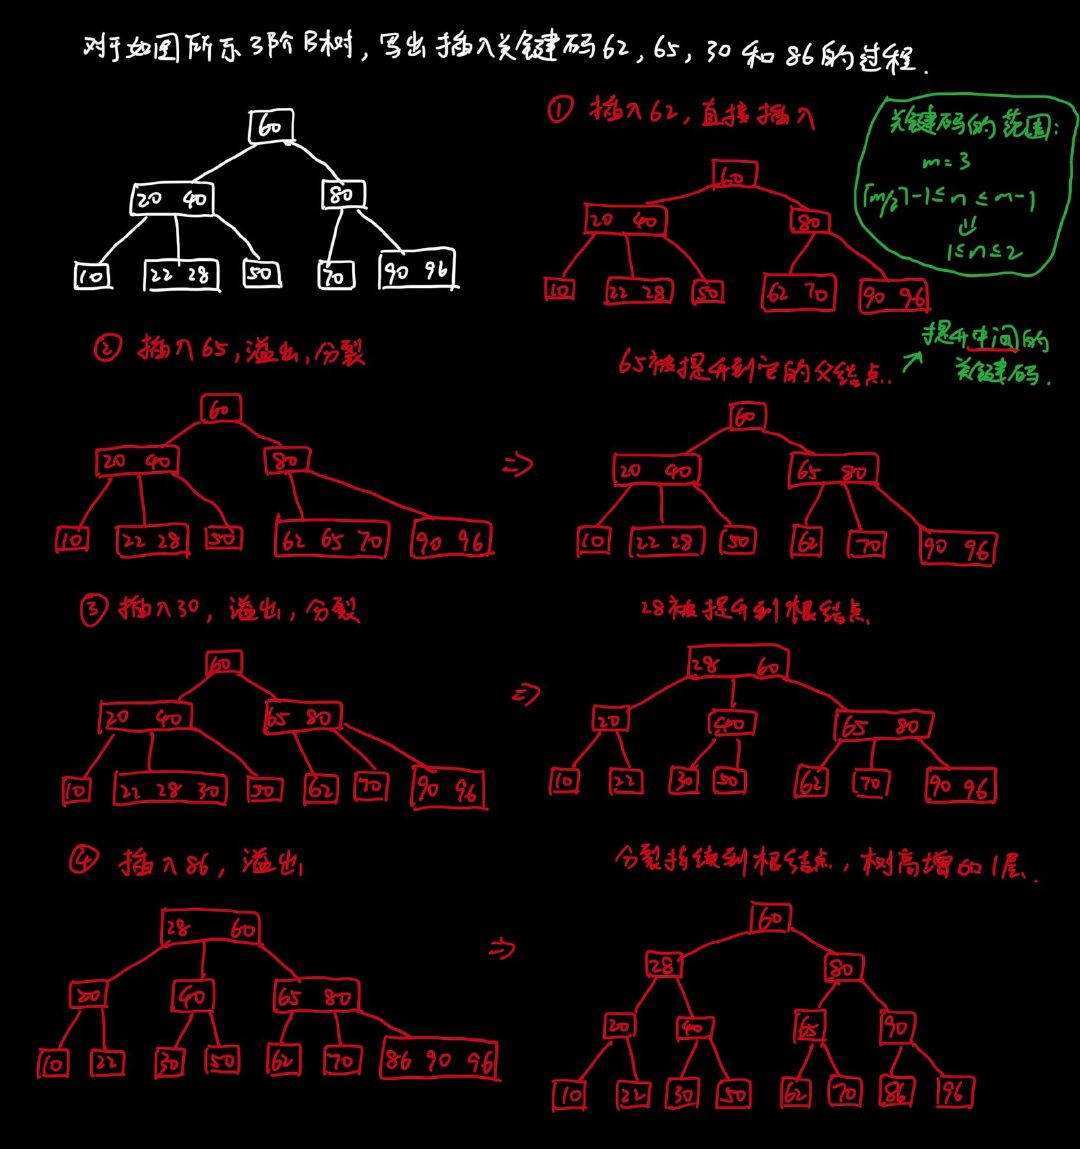 对于如图所示3阶B树，写出插入关键码62，65，30和86的过程．
60
20 40 80
10 22 28 50 70 90 96
① 插入62，直接插入
60
20 40 80
10 22 28 50 62 70 90 96
关键码的范围：
m=3
⌈m/2⌉-1≤n≤m-1
⇓
1≤n≤2
② 插入65，溢出，分裂
60
20 40 80
10 22 28 50 62 65 70 90 96
⇒
65被提升到它的父结点．
提升中间的
关键码．
60
20 40 65 80
10 22 28 50 62 70 90 96
③ 插入30，溢出，分裂
60
20 40 65 80
10 22 28 30 50 62 70 90 96
⇒
28被提升到根结点．
28 60
20 40 65 80
10 22 30 50 62 70 90 96
④ 插入86，溢出
28 60
20 40 65 80
10 22 30 50 62 70 86 90 96
⇒
分裂持续到根结点，树高增加1层．
60
28 80
20 40 65 90
10 22 30 50 62 70 86 96